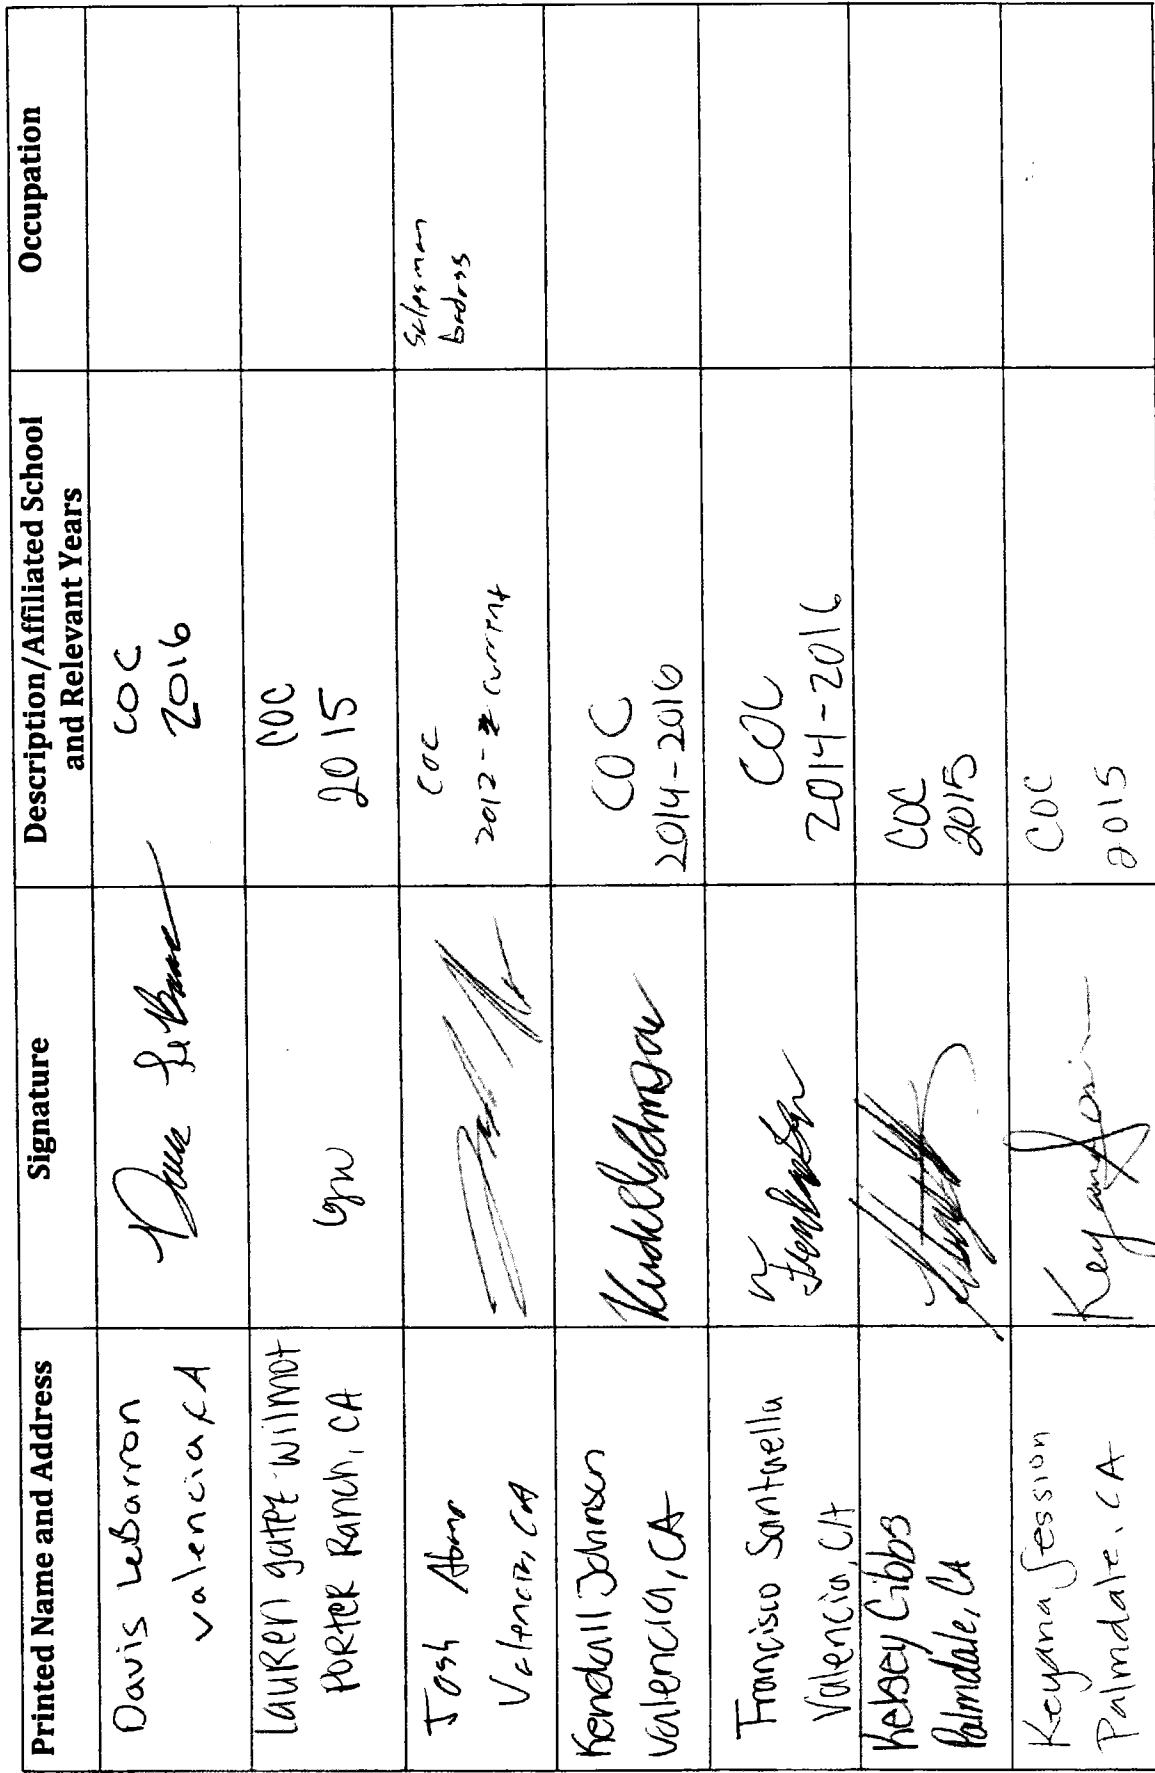 Printed Name and Address
Signature
Description/Affiliated School
and Relevant Years
Occupation
Davis LeBarron
Valencia, CA
COC
2016
Lauren gatet-wilmot
Porter Ranch, CA
lgw
COC
2015
Josh
Valencia, CA
COC
2012 - current
Salesman
badass
Kendall Johnson
Valencia, CA
COC
2014-2016
Francisco Santaella
Valencia, CA
COC
2014-2016
Kelsey Gibbs
Palmdale, CA
COC
2015
Keyana Session
Palmdale, CA
COC
2015